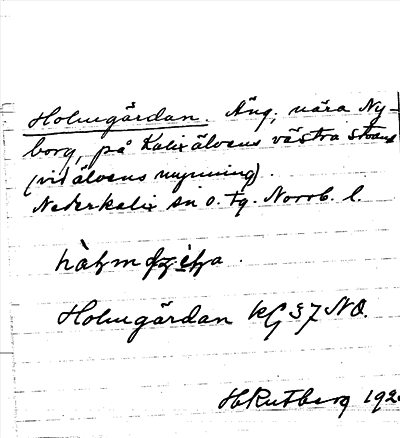 Holmgärdan. Äng, nära Ny-
borg, på Kalixälvens västra strand
(vid älvens mynning).
Nederkalix sn o. tg. Norrb. l.
Holmgärdan KG 37 NO.
H Rutberg 192